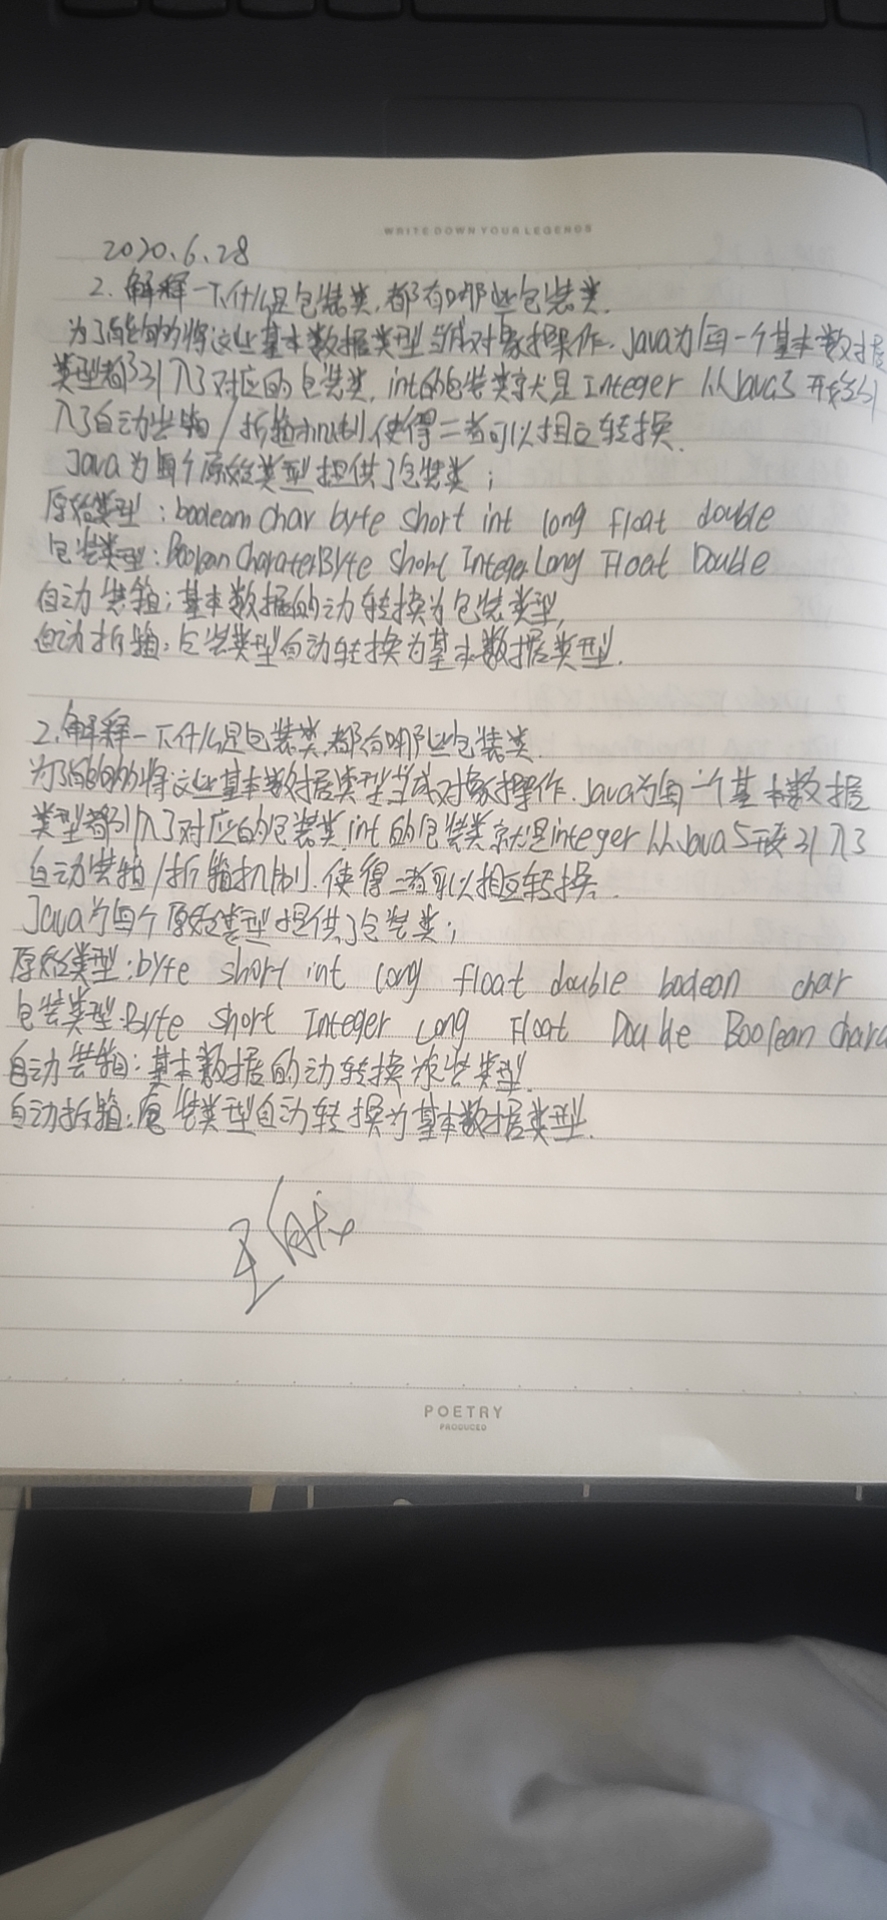 WRITE DOWN YOUR LEGENDS
2020.6.28
2. 解释一下什么是包装类,都有哪些包装类.
为了能够将这些基本数据类型当成对象操作.Java为每一个基本数据
类型都引入了对应的包装类,int的包装类就是Integer 从Java5 开始引
入了自动装箱/折箱机制,使得二者可以相互转换.
Java为每个原始类型提供了包装类;
原始类型:boolean char byte short int long float double
包装类型:Boolean CharaterByte Short Integer Long Float Double
自动装箱:基本数据的动转换为包装类型,
自动折箱:包装类型自动转换为基本数据类型.
2.解释一下什么是包装类,都有哪些包装类
为了能够将这些基本数据类型当成对象操作.Java为每一个基本数据
类型都引入了对应的包装类,int的包装类就是integer 从Java5开始引入了
自动装箱/折箱机制.使得二者可以相互转换.
Java为每个原始类型提供了包装类;
原始类型:byte short int long float double boolean char
包装类型:Byte Short Integer Long Float Double Boolean Chara
自动装箱:基本数据的动转换为包装类型.
自动折箱:包装类型自动转换为基本数据类型.
POETRY
PRODUCED